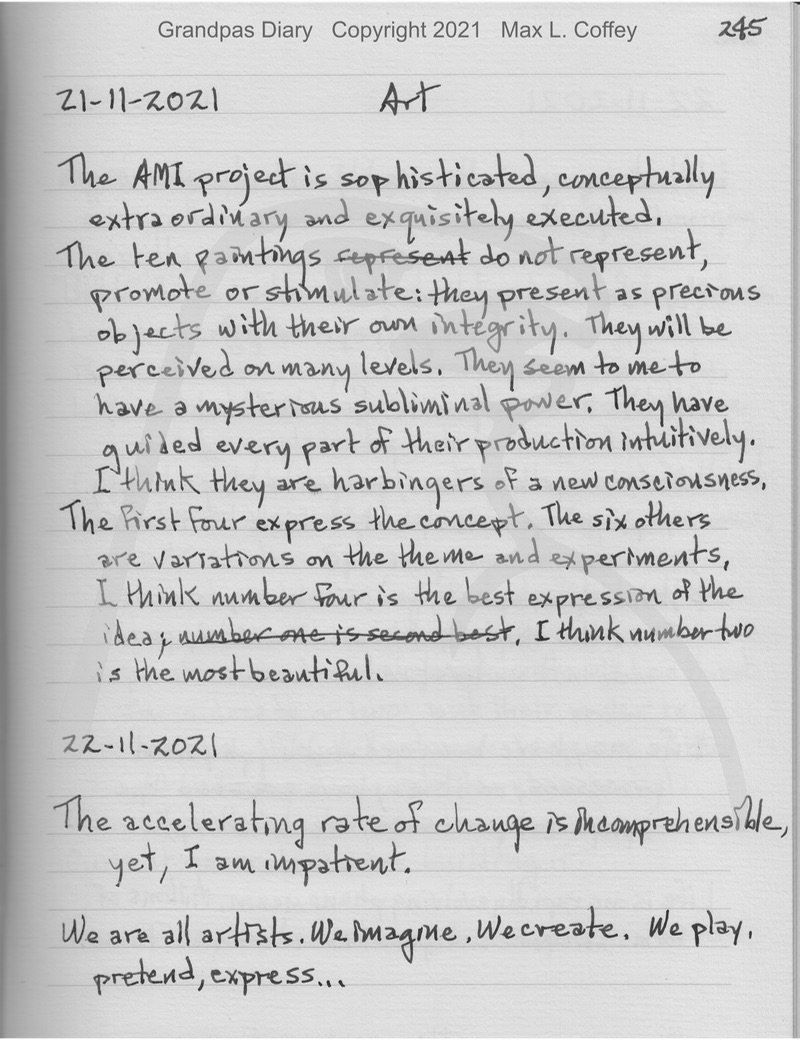 Grandpas Diary Copyright 2021 Max L. Coffey
245
21-11-2021 Art
The AMI project is sophisticated, conceptually
extraordinary and exquisitely executed.
The ten paintings represent do not represent,
promote or stimulate: they present as precious
objects with their own integrity. They will be
perceived on many levels. They seem to me to
have a mysterious subliminal power. They have
guided every part of their production intuitively.
I think they are harbingers of a new consciousness.
The first four express the concept. The six others
are variations on the theme and experiments,
I think number four is the best expression of the
idea; number one is second best. I think number two
is the most beautiful.
22-11-2021
The accelerating rate of change is incomprehensible,
yet, I am impatient.
We are all artists. We imagine. We create. We play,
pretend, express...